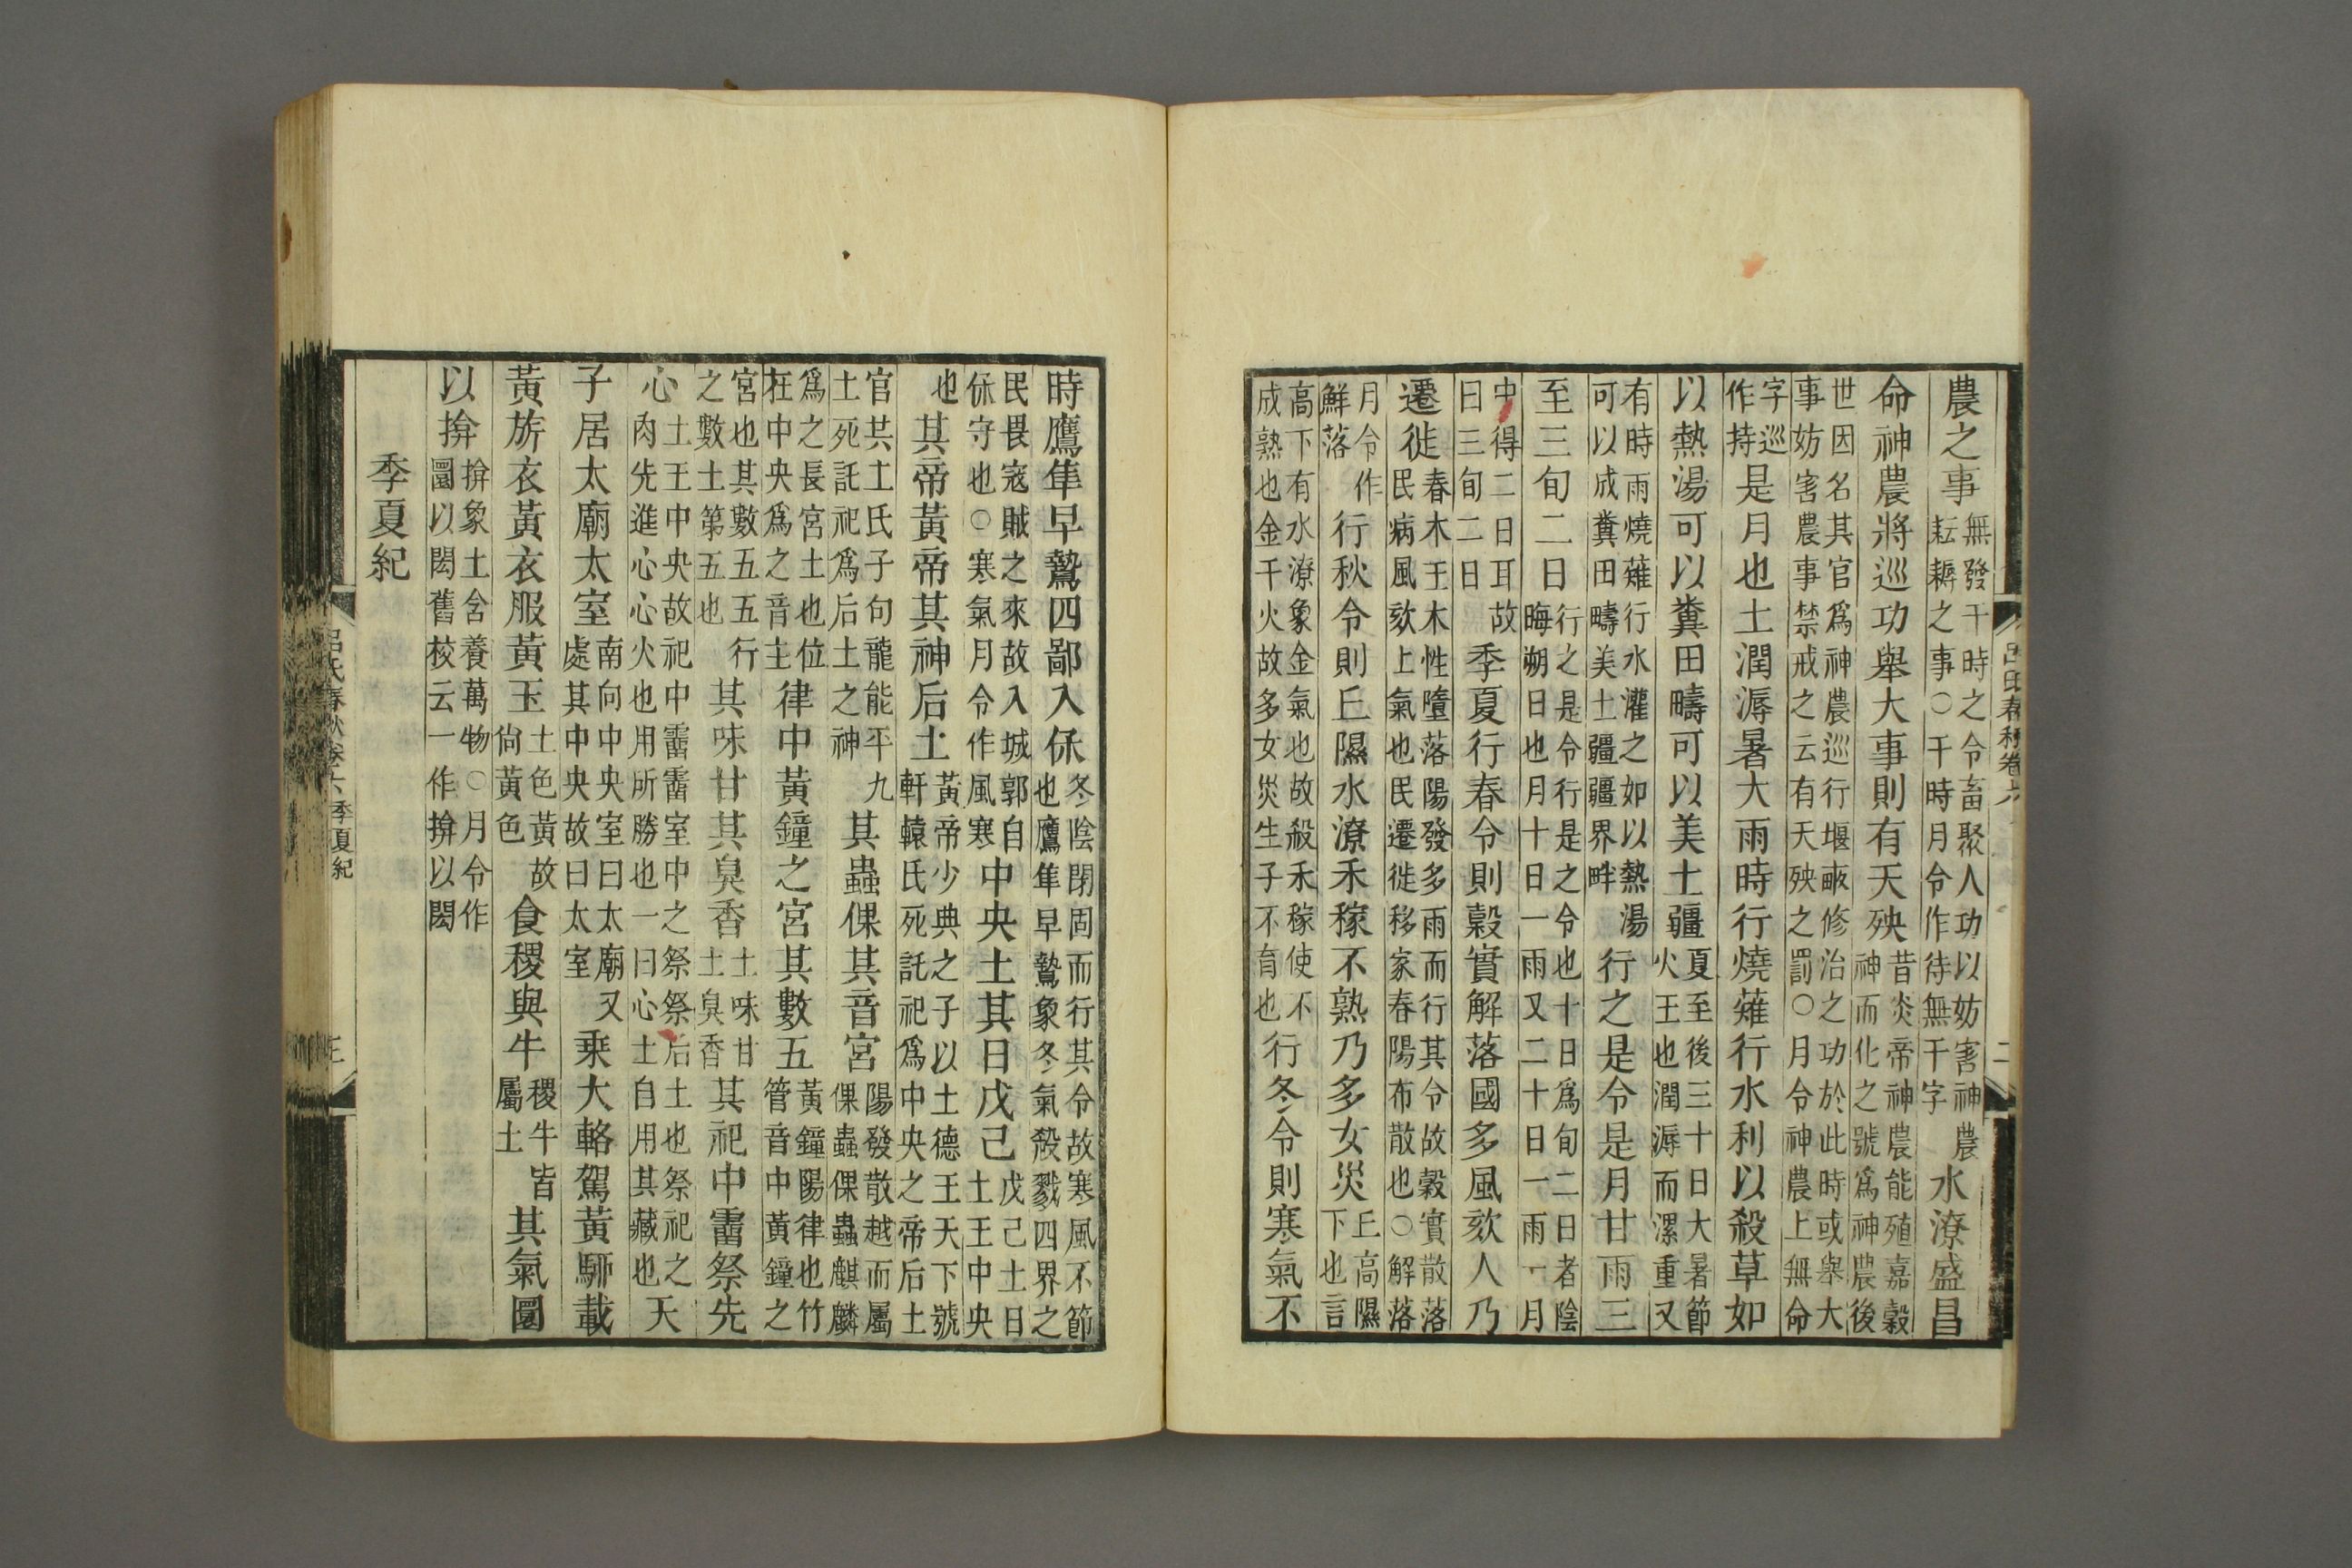 農之事無發干時之令畜聚人功以妨害神農耘耨之事○干時月令作待無干字水潦盛昌
命神農將巡功舉大事則有天殃昔炎帝神農能殖嘉穀神而化之號爲神農後
世因名其官爲神農巡行堰畝修治之功於此時或舉大事妨害農事禁戒之云有天殃之罰○月令神農上無命
字巡作持是月也土潤溽暑大雨時行燒薙行水利以殺草如
以熱湯可以糞田疇可以美土疆夏至後三十日大暑節火王也潤溽而漯重又
有時雨燒薙行水灌之如以熱湯可以成糞田疇美土疆疆界畔行之是令是月甘雨三
至三旬二日行之是令行是之令也十日爲旬二日者陰晦朔日也月十日一雨又二十日一雨一月
中得二日耳故曰三旬二日季夏行春令則穀實解落國多風欬人乃
遷徙春木王木性墮落陽發多雨而行其令故穀實散落民病風欬上氣也民遷徙移家春陽布散也○解落
月令作鮮落行秋令則丘隰水潦禾稼不熟乃多女災丘高隰下也言
高下有水潦象金氣也故殺禾稼使不成熟也金干火故多女災生子不育也行冬令則寒氣不
呂氏春秋卷六
二
時鷹隼早鷙四鄙入保冬陰閉固而行其令故寒風不節也鷹隼早鷙象冬氣殺戮四界之
民畏寇賊之來故入城郭自保守也○寒氣月令作風寒中央土其日戊己戊己土日土王中央
也其帝黃帝其神后土黃帝少典之子以土德王天下號軒轅氏死託祀爲中央之帝后土
官共工氏子句龍能平九土死託祀爲后土之神其蟲倮其音宮陽發散越而屬倮蟲倮蟲麒麟
爲之長宮土也位在中央爲之音主律中黃鐘之宮其數五黃鐘陽律也竹管音中黃鐘之
宮也其數五五行之數土第五也其味甘其臭香土味甘土臭香其祀中霤祭先
心土王中央故祀中霤霤室中之祭祭后土也祭祀之肉先進心心火也用所勝也一曰心土自用其藏也天
子居太廟太室南向中央室曰太廟又處其中央故曰太室乘大輅駕黃駵載
黃旂衣黃衣服黃玉土色黃故尙黃色食稷與牛稷牛皆屬土其氣圜
以揜揜象土含養萬物○月令作圜以閎舊校云一作揜以閎
季夏紀
呂氏春秋卷六 季夏紀
三